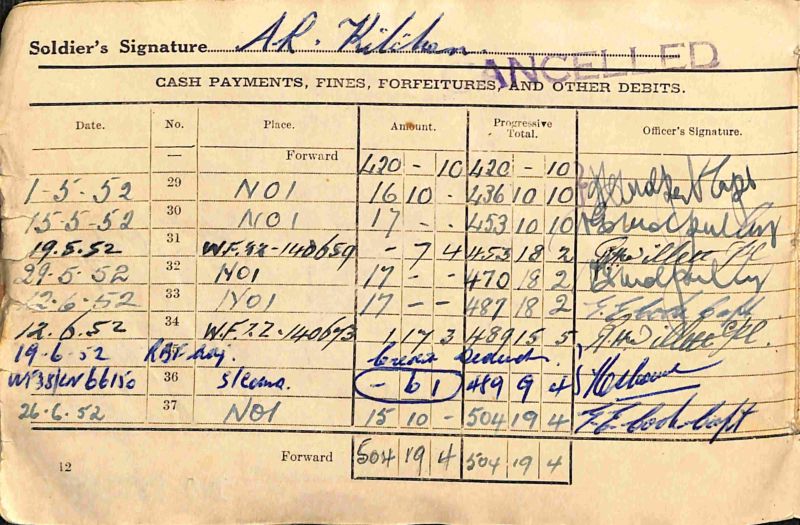 Soldier's Signature A R. Kitchen.
CANCELLED
CASH PAYMENTS, FINES, FORFEITURES, AND OTHER DEBITS.
Date. No. Place. Amount. Progressive Total. Officer's Signature.
— Forward 420 - 10 420 - 10
1-5-52 29 NO1 16 10 - 436 10 10
15-5-52 30 NO1 17 - - 453 10 10
19.5.52 31 W.F.22-140659 - 7 4 453 18 2
29-5-52 32 NO1 17 - - 470 18 2
12-6-52 33 NO1 17 - - 487 18 2 G.E Cook Capt
12.6.52 34 W.F.22-140693 1 17 3 489 15 5,
19.6.52
36 - 6 1 489 9 4
26-6-52 37 NO1 15 10 - 504 19 4 G.E Cook Capt
12 Forward 504 19 4 504 19 4